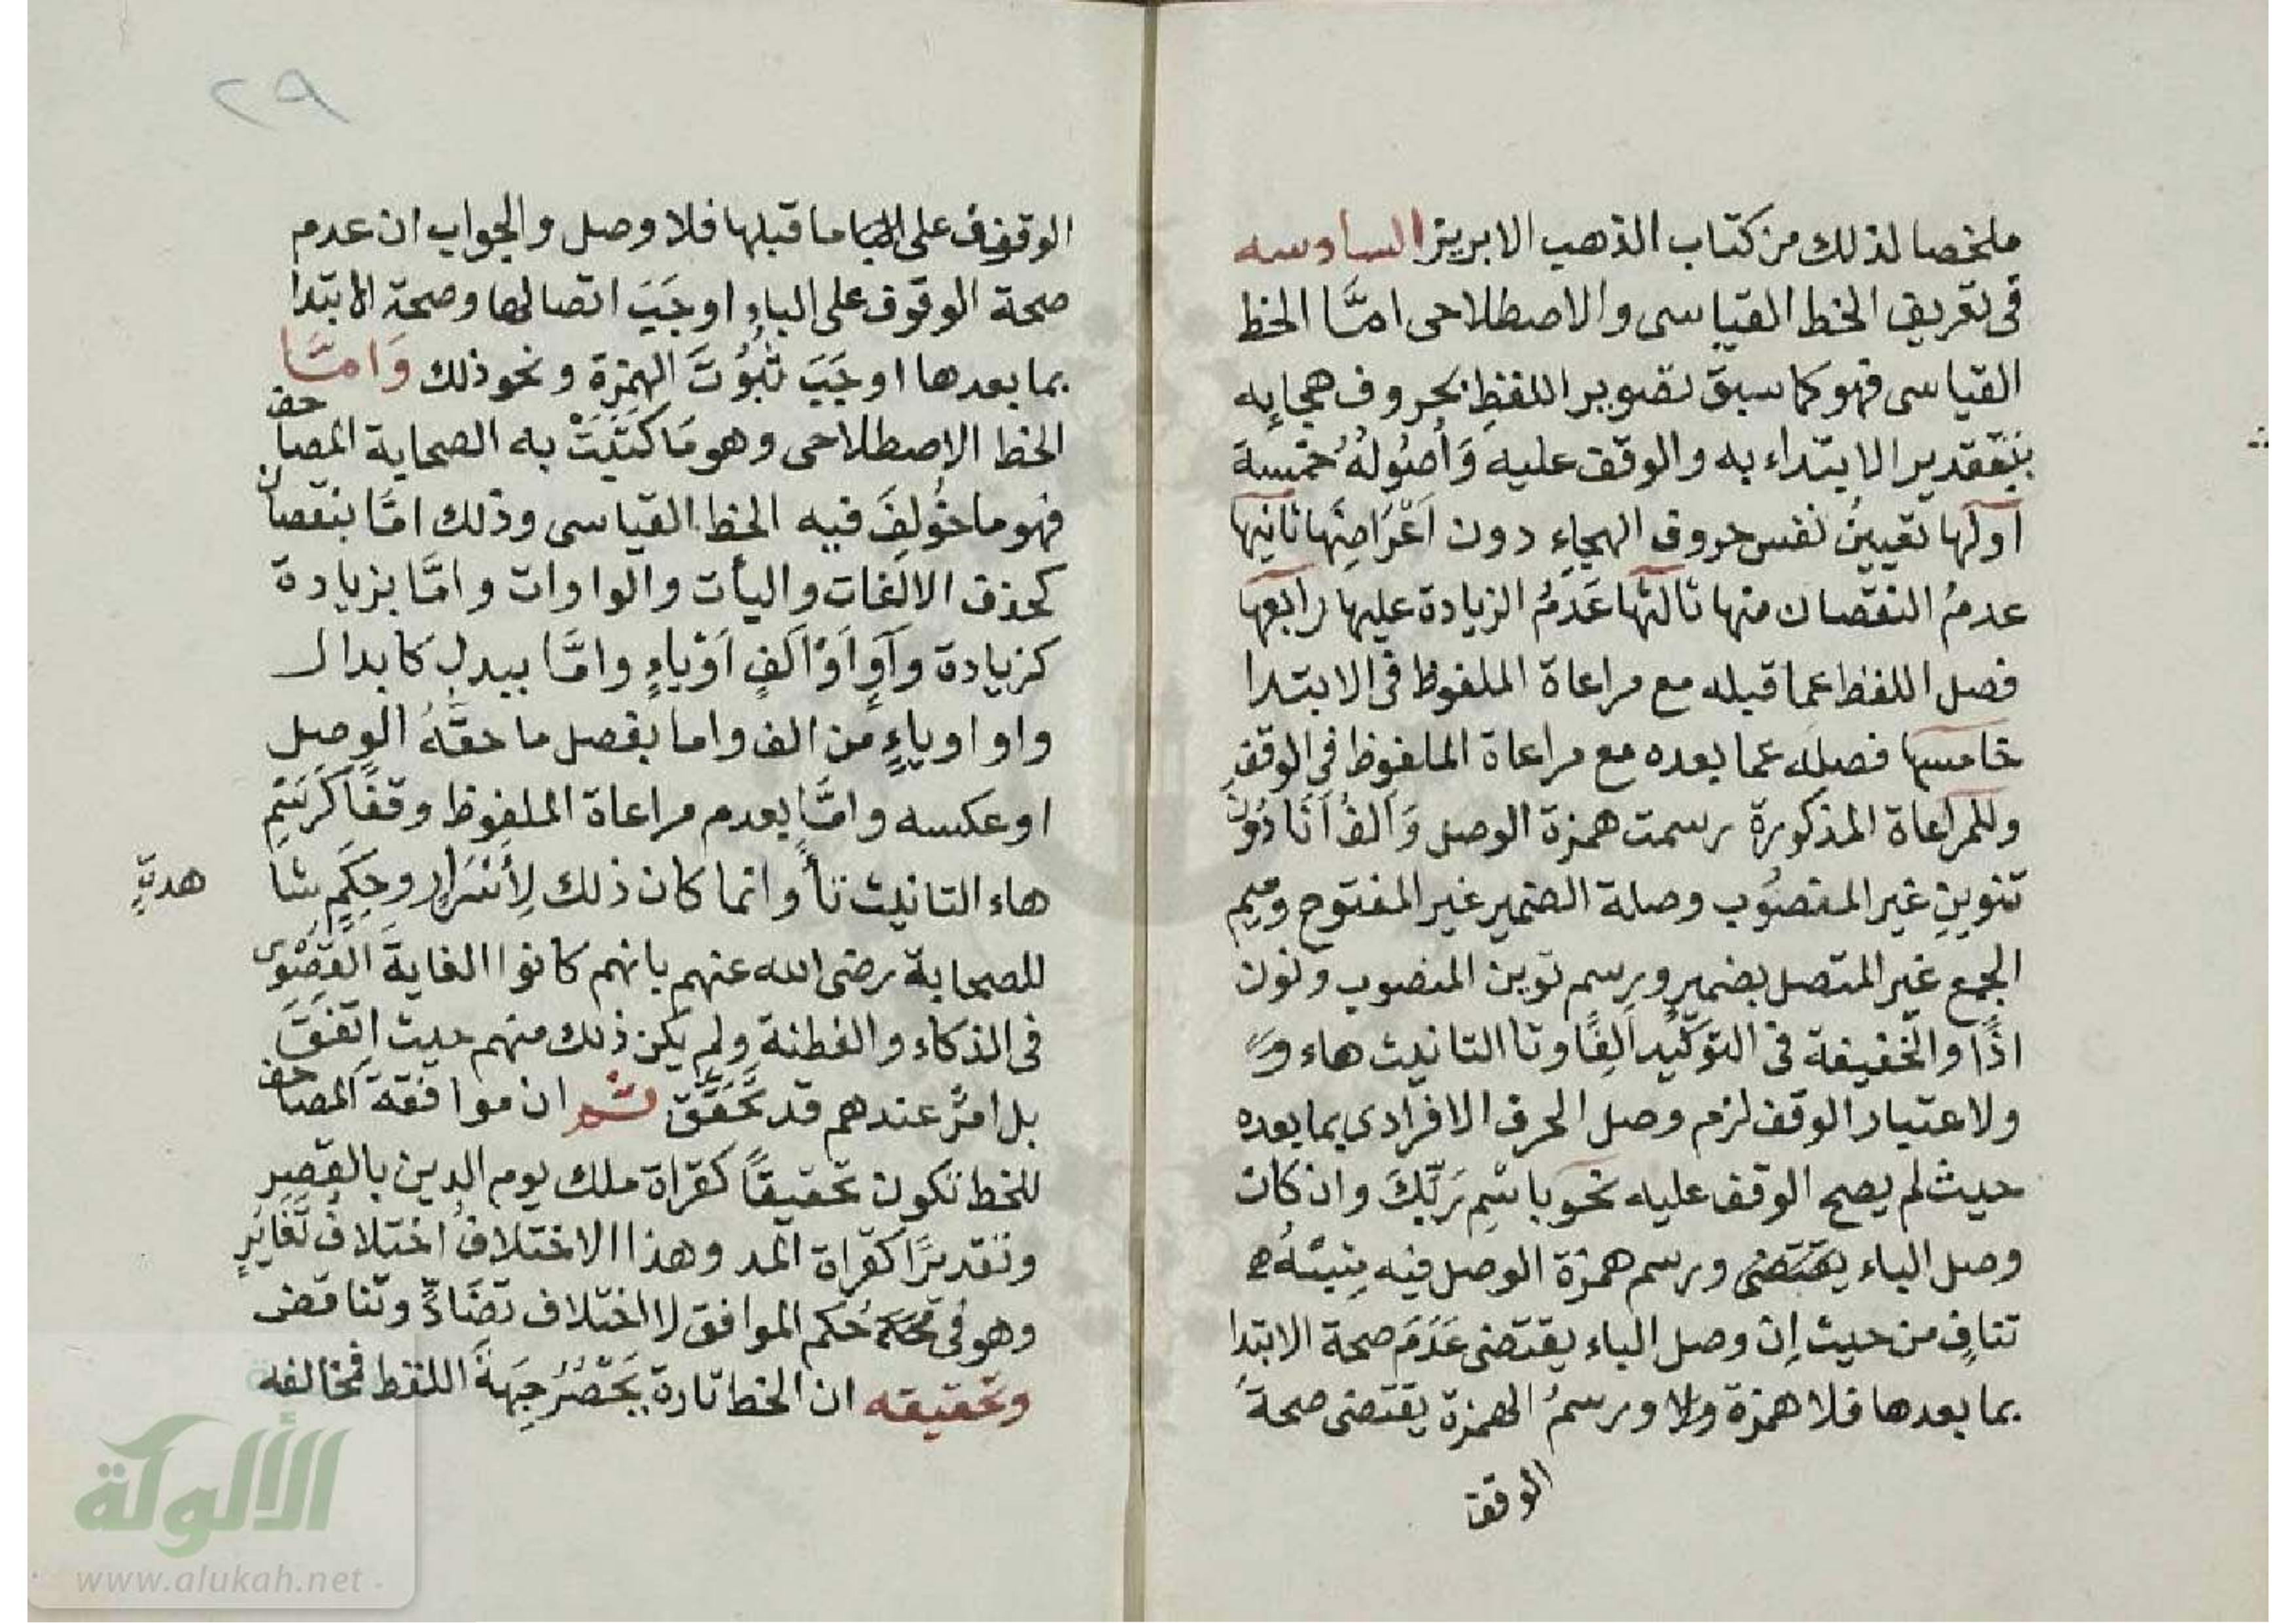 ملخصا لذلك من كتاب الذهب الابريز السادسه
فى تعريف الخط القياسى والاصطلاحى امَّا الخط
القياسى فهو كما سبق تصوير اللفظِ بحروف هجايِه
بتقدير الابتداء به والوقف عليه وَأُصُولُهُ خمْسة
اولها تعيينُ نفس حروف الهجاءِ دون اَعْرَاضِهَا ثانيها
عدمُ النقصان منها ثالثها عَدَمُ الزيادة عليها رابعها
فصل اللفظ عما قبله مع مراعاة الملفوظ فى الابتدا
خامسها فصله عما بعده مع مراعاة الملفوظ فى الوقف
وللمراعاة المذكورة رسمت همزة الوصل وَاَلفُ اَنَا دُوْنَ
تنوينِ غير المنصُوب وصلة الضمير غير المفتوح وميم
الجمع غير المتصل بضمير ورسم توين المنصوب ونون
اذًا والخفيفة فى التوكيد اَلِفًا وتا التانيث هاء
ولاعتبار الوقف لزم وصل الحرف الافرادى بما بعده
حيث لم يصح الوقف عليه نحو باسْمِ رَبِّكَ وان كان
وصل الباء يقتضى ورسم همزة الوصل فيه
تنافٍ من حيث اِن وصل الباء يقتضى عَدَمَ صحة الابتدا
بما بعدها فلا همزة ورسمُ الهمزة يقتضى صحةَ
الوقف
٢٩
الوقوف على ما قبلها فلا وصل والجواب ان عدم
صحة الوقوف على الباءِ اوجَبَ اتصالها وصحة الابتدا
بما بعدها اوجَبَ ثُبُوْتَ الهمزة ونحو ذلك وَامَّا
الخط الاصطلاحى وهو مَا كَتَبَتْ به الصحابة المصاحف
فهو ما خُولِفَ فيه الخط القياسى وذلك امَّا بنقصان
كحذف الالفات واليأت والواوات وامَّا بزيادة
كزيادة وَاوٍ اَوْ اَلفٍ اَوْ ياءٍ وامَّا ببدلٍ كابدال
واو او ياءٍ من الف واما بفصل ما حقّهُ الوصل
او عكسه وامَّا بعدم مراعاة الملفوظ وقفًا كَرَسْمِ
هاء التانيث تاً وانما كان ذلك لِأَسْرَارٍ وحِكَمٍ شا
هدةٍ
للصحابة رضى الله عنهم بانهم كانوا الغايةَ القصْوى
فى الذكاء والفطنة ولم يكن ذلك منهم حيث اتفقَ
بل امرٌ عندهم قد تَحَقَّقَ ثم ان موافقة المصاحف
للخط تكون تحقيقاً كقراة ملك يوم الدين بالقصر
وتقديرًا كقراة المد وهذا الاختلافُ اختلاف تَغَايُرٍ
وهو فى حُكم الموافق لا اختلاف تضَادٍّ وتناقض
وتحقيقه ان الخط تارة يَحْصُرُ جِهَةَ اللفظ فمخالفه
الألوكة
www.alukah.net